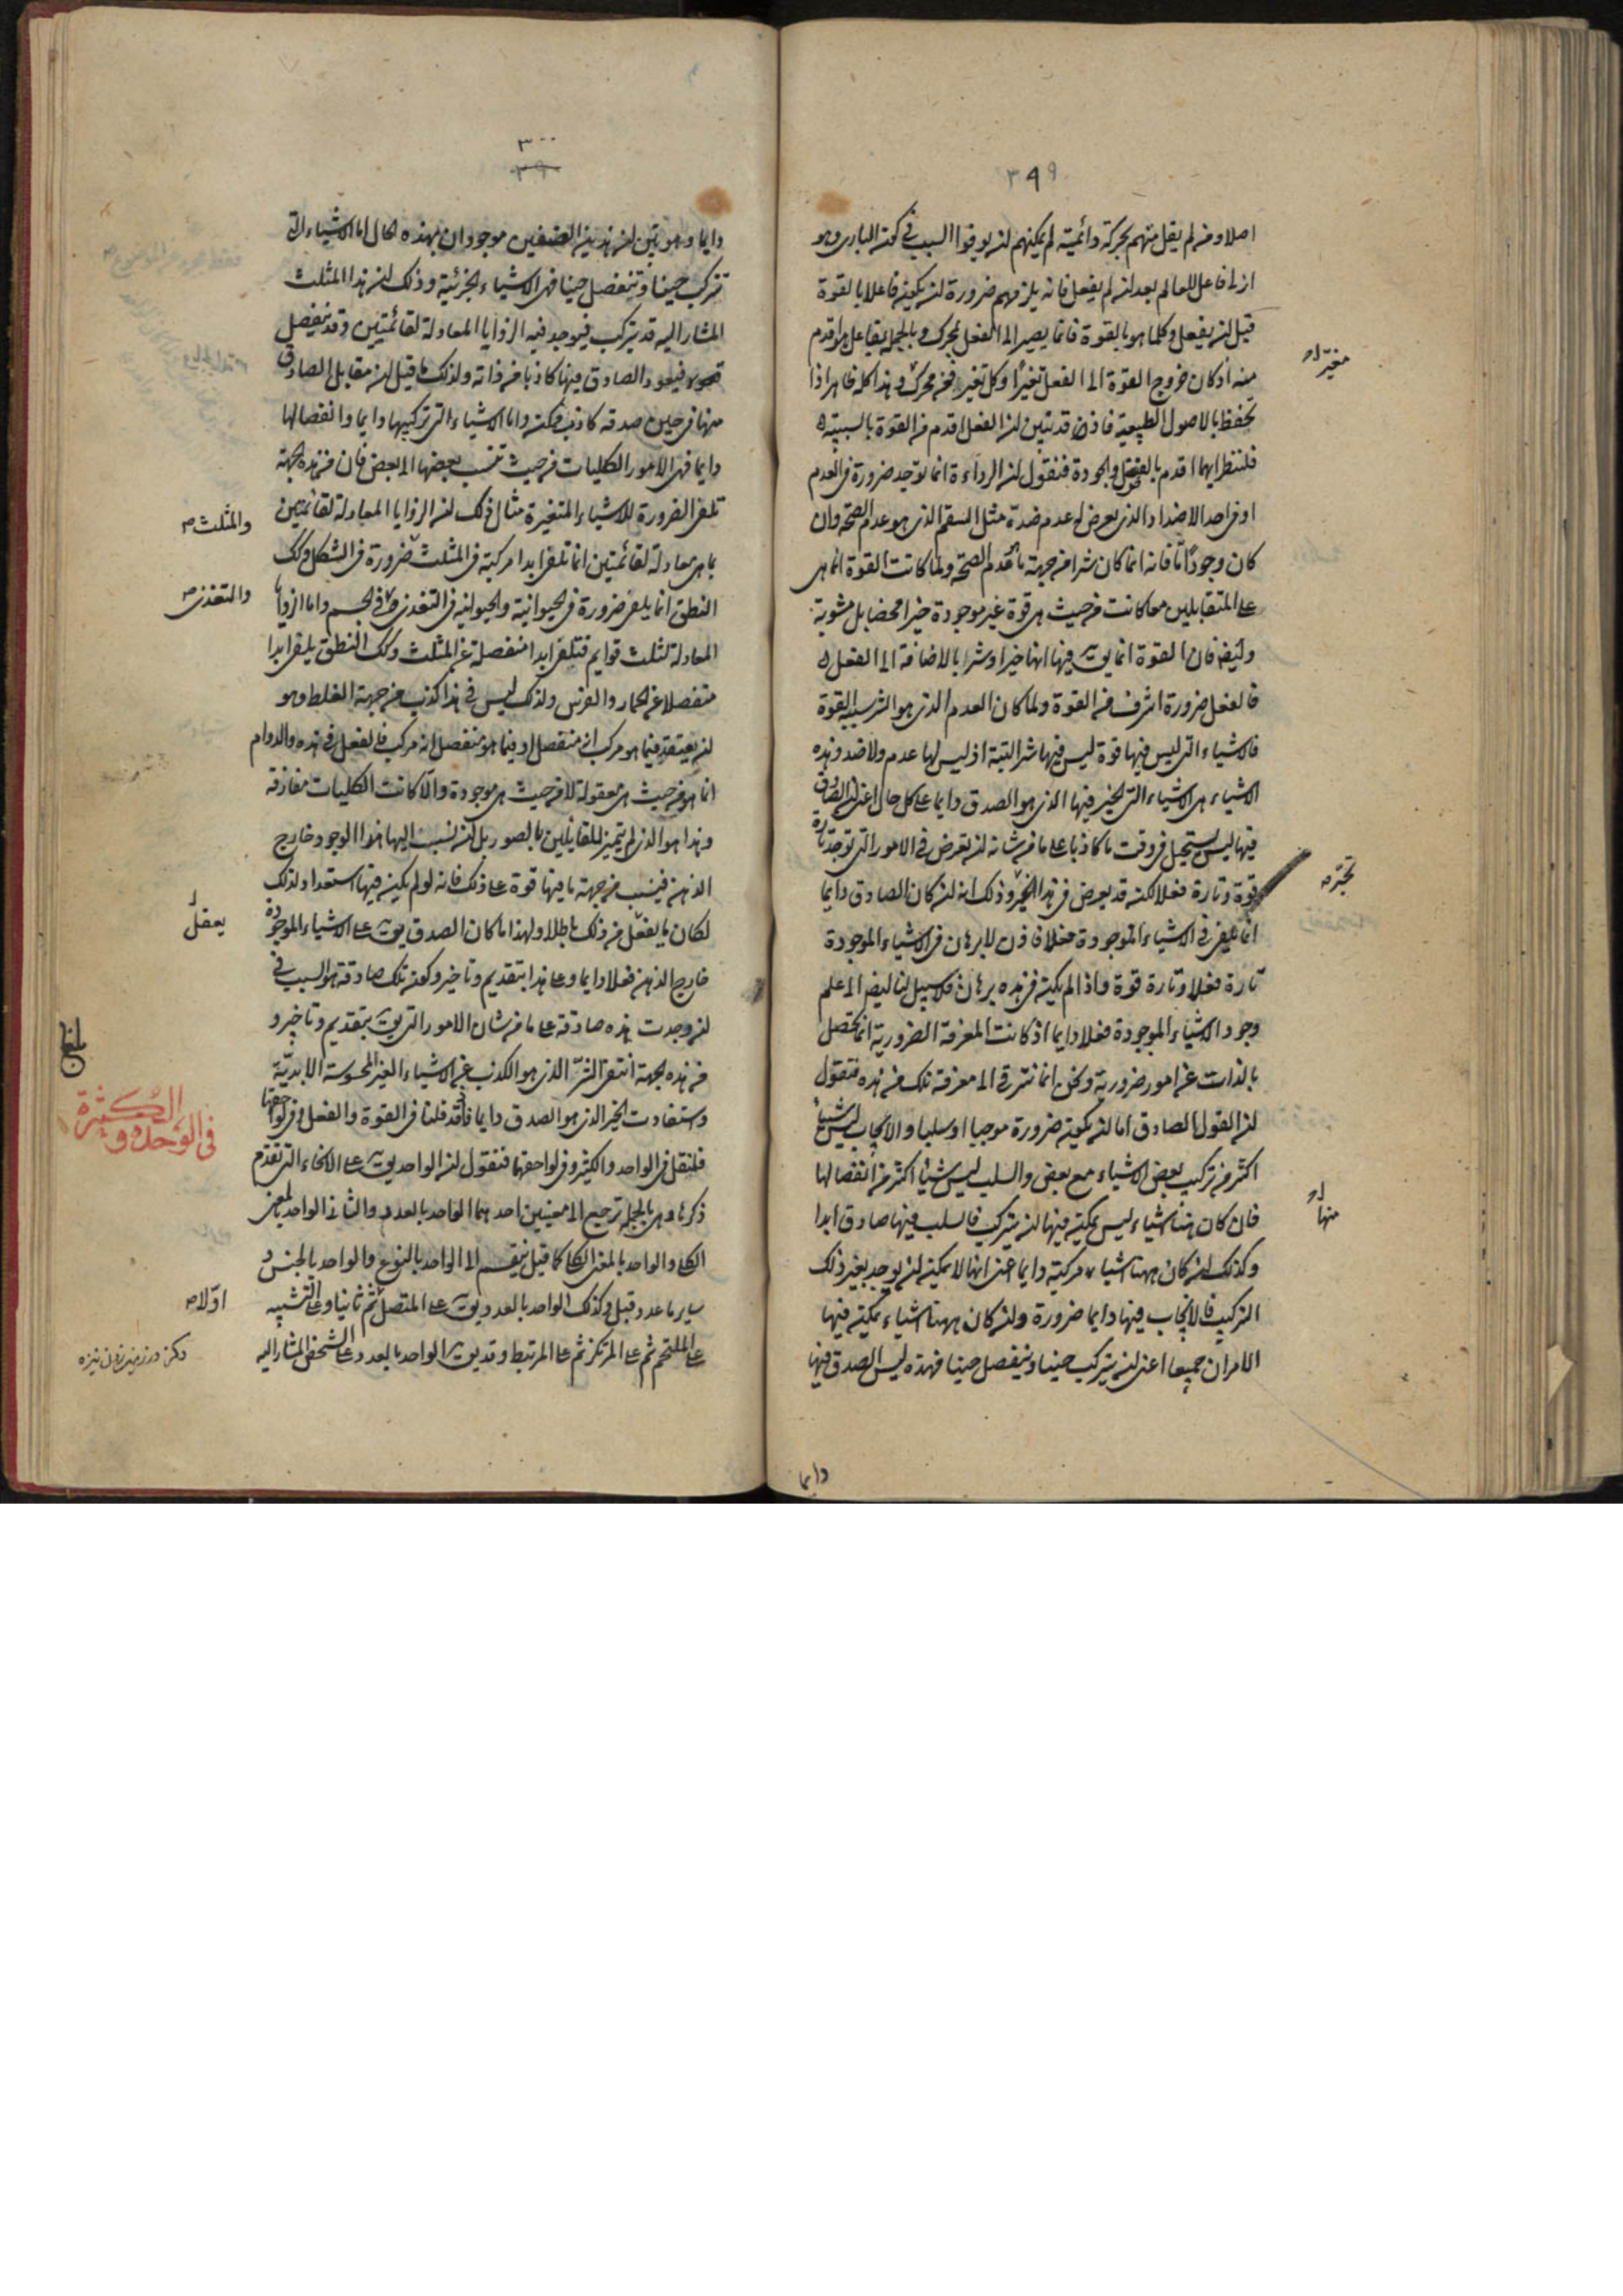 ٣٩٩
اصلا ومن لم يقل منهم بحركة دائمية لم يمكنهم ان يوفوا السبب في كون البارى وهو
ازلى فاعل للعالم بعد ان لم يفعل فانه يلزمهم ضرورة ان يكون فاعلا بالقوة
قبل ان يفعل وكلما هو بالقوة فانما يصير الى الفعل بمحرك وبالجملة بفاعل هو اقدم
منه اذ كان خروج القوة الى الفعل تغيرا وكل تغير فمن محرك وهذا كله ظاهر اذا
تحفظ بالاصول الطبيعية فاذن قد تبين ان الفعل اقدم من القوة بالسببية
فلننظر ايهما اقدم بالفضل والجودة فنقول ان الرداءة انما توجد ضرورة في العدم
او في احد الاضداد الذى يعرض له عدم ضده مثل السقم الذى هو عدم الصحة وان
كان وجودا ما فانه انما كان شرا من جهة ما عدم الصحة ولما كانت القوة انما هى
على المتقابلين معا كانت من حيث هى قوة غير موجودة خيرا محضا بل مشوبة
وايضا فان القوة انما يق فيها انها خير او شر بالاضافة الى الفعل
فالفعل ضرورة اشرف من القوة ولما كان العدم الذى هو الشر سببه القوة
فالاشياء التى ليس فيها قوة ليس فيها شر البتة اذ ليس لها عدم ولا ضد وهذه
الاشياء هى الاشياء التى الخير فيها الذى هو الصدق دايما على كل حال اعنى ان الصادق
فيها ليس يستحيل في وقت ما كاذبا على ما من شانه ان يعرض في الامور التى توجد تارة
قوة وتارة فعلا لكنه قد يعرض في هذا الخير وذلك انه ان كان الصادق دايما
انما يلفى في الاشياء الموجودة فعلا فاذن لا برهان في الاشياء الموجودة
تارة فعلا وتارة قوة واذا لم يكن في هذه برهان فلا سبيل لنا ايضا الى علم
وجود الاشياء الموجودة فعلا دايما اذ كانت المعرفة الضرورية انما تحصل
بالذات عن امور ضرورية ونحن انما نترقى الى معرفة تلك من هذه فنقول
ان القول الصادق اما ان يكون ضرورة موجبا او سلبا والايجاب ليس شيئا
اكثر من تركيب بعض الاشياء مع بعض والسلب ليس شيئا اكثر من انفصالها
فان كان هنا اشياء ليس يمكن فيها ان يتركب فالسلب فيها صادق ابدا
وكذلك ان كان ههنا اشياء مركبة دايما اعنى انها لا يمكن ان يوجد بغير ذلك
التركيب فالايجاب فيها دايما ضرورة وان كان ههنا اشياء يمكن فيها
الامران جميعا اعنى ان يتركب حينا وينفصل حينا فهذه ليس الصدق فيها
دايما
منها
٣٠٠
دايما وهو بيّن ان هذين الصنفين موجودان بهذه الحال اما الاشياء التى
تتركب حينا وتنفصل حينا فهى الاشياء الجزئية وذلك ان هذا المثلث
المشار اليه قد يتركب فيوجد فيه الزوايا المعادلة لقائمتين وقد ينفصل
فيعود الصادق فيها كاذبا من ذاته ولذلك ما قيل ان مقابل الصادق
منها في حين صدقه كاذب ممكن واما الاشياء التى تركيبها دايما وانفصالها
دايما فهى الامور الكليات من حيث تنسب بعضها الى بعض فان من هذه الجهة
تلفى الضرورة للاشياء المتغيرة مثال ذلك ان الزوايا المعادلة لقائمتين
بما هى معادلة لقائمتين انما تلفى ابدا مركبة في المثلث ضرورة في الشكل وكك
النطق انما يلفى ضرورة في الحيوانية والحيوانية في التغذى في الجسم واما الزوايا
المعادلة لثلث قوايم فتلفى ابدا منفصلة عن المثلث وكك النطق يلفى ابدا
منفصلا عن الحمار والفرس ولذلك ليس في هذا كذب من جهة الغلط وهو
ان يعتقد فيما هو مركب انه منفصل او فيما هو منفصل انه مركب فالفعل في هذه والدوام
انما هو من حيث هى معقولة لا من حيث هى موجودة والا كانت الكليات مفارقة
وهذا هو الذى لم يتميز للقائلين بالصور بل ان نسب اليها هذا الوجود خارج
الذهن فينسب من جهة ما فيها قوة على ذلك فانه لو لم يكن فيها استعداد لذلك
لكان ما يفعل من ذلك باطلا ولهذا ما كان الصدق يق على الاشياء الموجودة
خارج الذهن فعلا دايما وعلى هذا بتقديم وتاخير وكون تلك صادقة هو السبب في
ان وجدت هذه صادقة على ما من شان الامور التى يق بتقديم وتاخير و
من هذه الجهة انتفى الشر الذى هو الكذب عن الاشياء الغير المحسوسة الابدية
واستفادت الخير الذى هو الصدق دايما فاذ قد قلنا في القوة والفعل وفي لواحقها
فلننقل في الواحد والكثير وفي لواحقهما فنقول ان الواحد يق على الانحاء التى تقدم
ذكرها وهى بالجملة ترجع الى معنيين احدهما الواحد بالعدد والثانى الواحد بالمعنى
الكلى والواحد بالمعنى الكلى كما قيل ينقسم الى الواحد بالنوع والواحد بالجنس و
ساير ما عدد قبل وكذلك الواحد بالعدد يق على المتصل ثم ثانيا وعلى التشبيه
على الملتحم ثم على المرتكز ثم على المرتبط وقد يق الواحد بالعدد على الشخص المشار اليه
والمثلث
والمتغذى
يعقل
في الوحدة و الكثرة
اولا